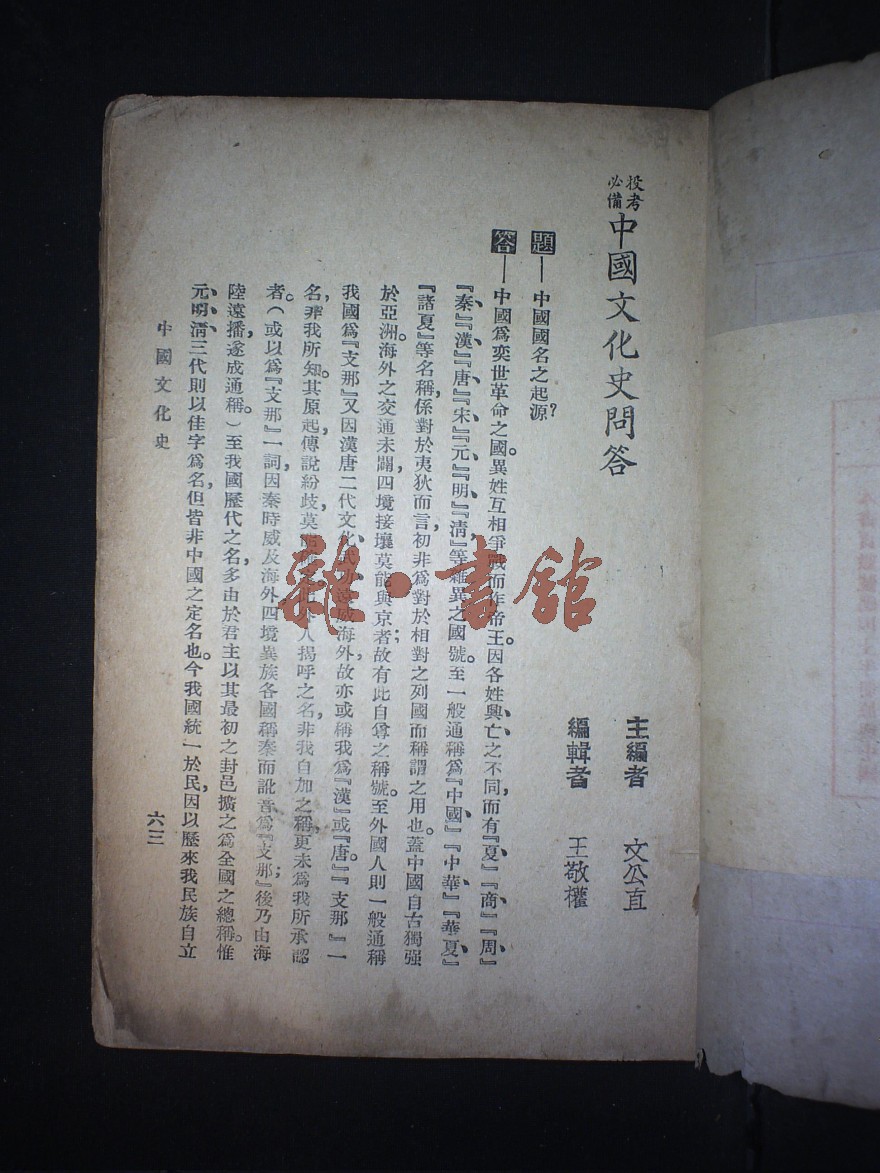 投考
必備
中國文化史問答
主編者　文公直
編輯者　王敬權
題—中國國名之起源?
答—中國爲奕世革命之國。異姓互相爭戰而作帝王。因各姓興、亡之不同,而有『夏』、『商』、『周』、
『秦』、『漢』、『唐』、『宋』、『元』、『明』、『清』等雜異之國號。至一般通稱爲『中國』、『中華』、『華夏』、
『諸夏』等名稱,係對於夷狄而言,初非爲對於相對之列國而稱謂之用也。蓋中國自古獨强
於亞洲。海外之交通未闢,四境接壤莫能與京者;故有此自尊之稱號。至外國人則一般通稱
我國爲『支那』又因漢唐二代文化、武功遠威海外,故亦或稱我爲『漢』或『唐』。『支那』一
名,非我所知。其原起傳說紛歧,莫人揭呼之名,非我自加之稱,更未爲我所承認
者。(或以爲『支那』一詞,因秦時威及海外,四境異族各國稱秦而訛音爲『支那』;後乃由海
陸遠播,遂成通稱。)至我國歷代之名,多由於君主以其最初之封邑擴之爲全國之總稱。惟
元、明、清三代則以佳字爲名,但皆非中國之定名也。今我國統一於民,因以歷來我民族自立
中國文化史
六三
雜·書館